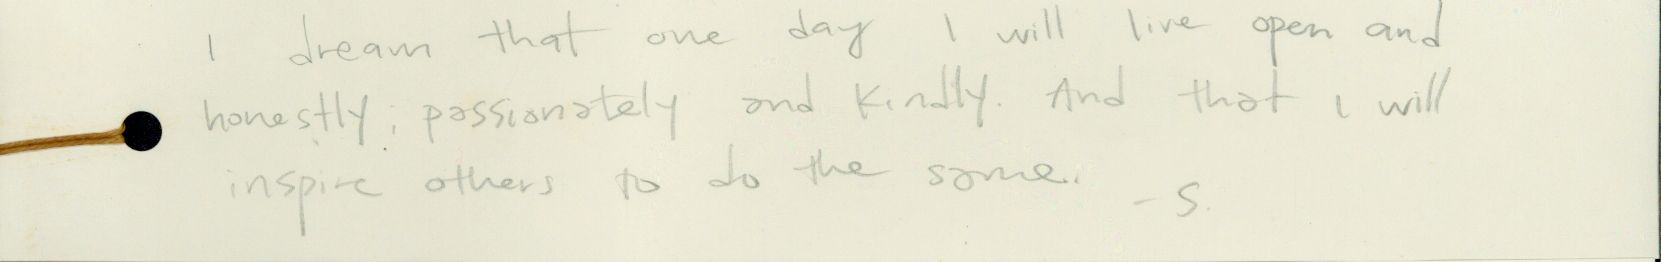 I dream that one day I will live open and
honestly; passionately and kindly. And that I will
inspire others to do the same.
- S.